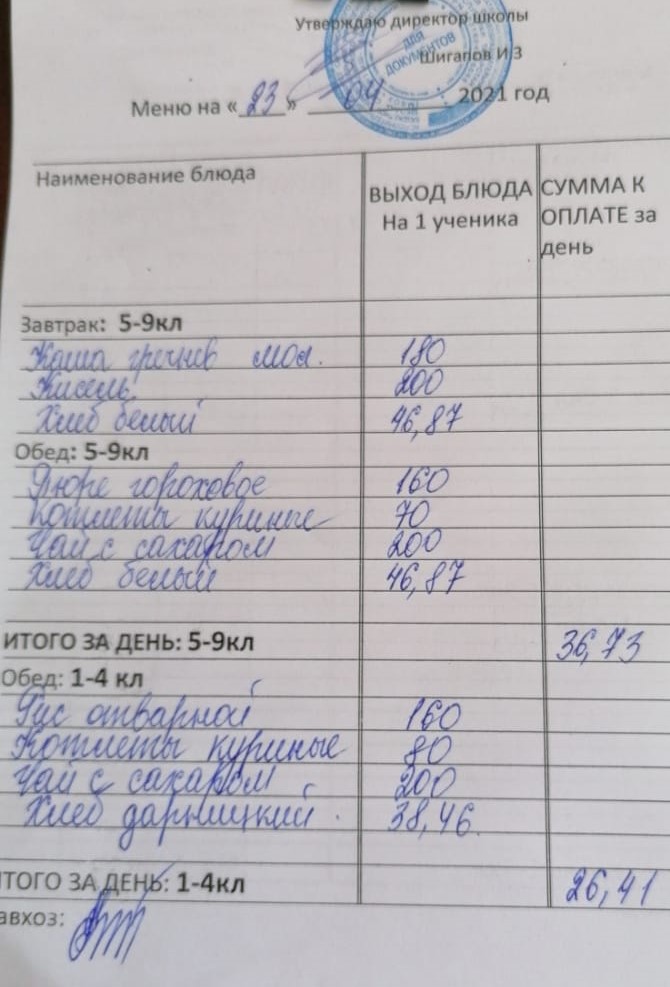 Утверждаю директор школы
ДЛЯ
ДОКУМЕНТОВ
Шигапов И З
Меню на « 23 » 04 . 2021 год
Наименование блюда ВЫХОД БЛЮДА На 1 ученика СУММА К ОПЛАТЕ за день
Завтрак: 5-9кл
Каша гречнев мол. 180
Кисель 200
Хлеб белый 46,87
Обед: 5-9кл
Пюре гороховое 160
Котлеты куриные 70
Чай с сахаром 200
Хлеб белый 46,87
ИТОГО ЗА ДЕНЬ: 5-9кл 36,73
Обед: 1-4 кл
Рис отварной 160
Котлеты куриные 80
Чай с сахаром 200
Хлеб дарницкий 38,46
ТОГО ЗА ДЕНЬ: 1-4кл 26,41
авхоз: